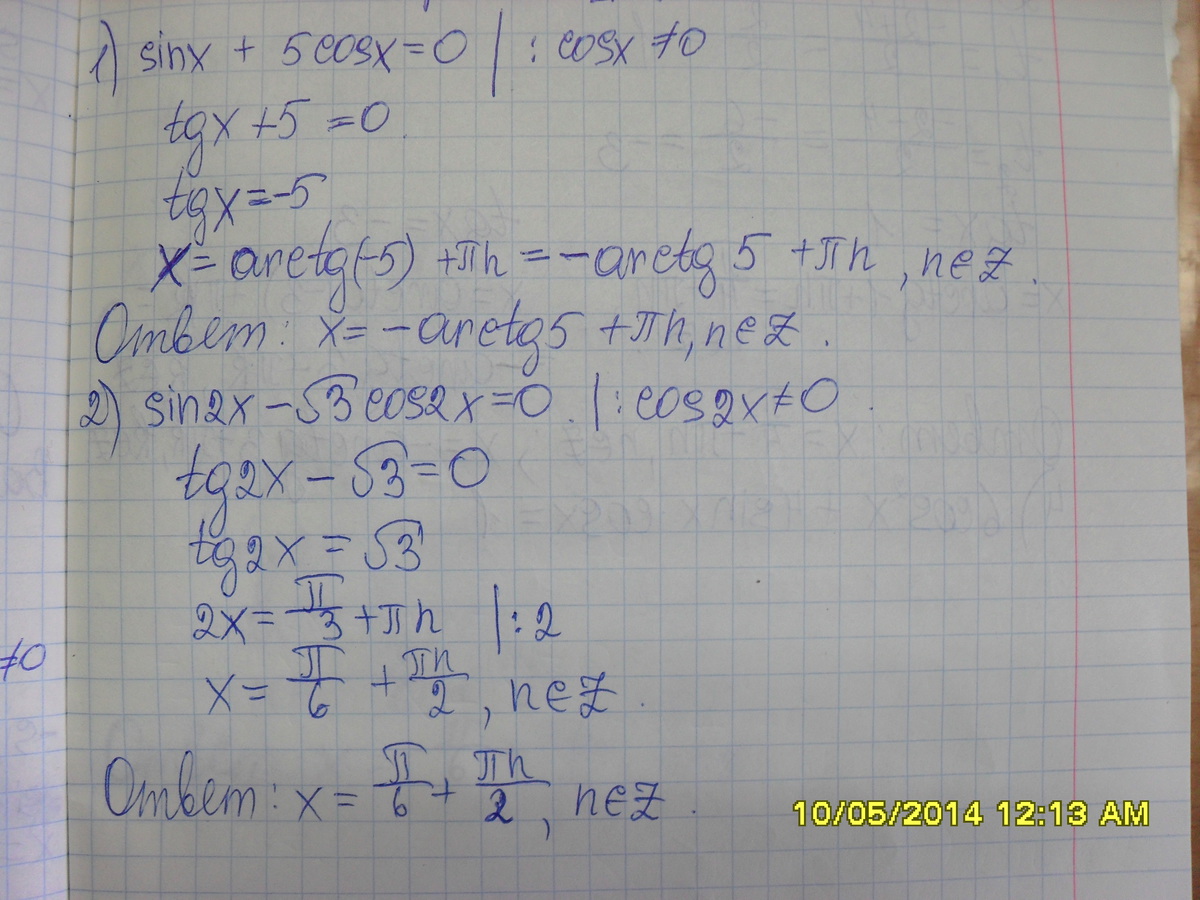 1) sinx + 5cosx=0 | : cosx ≠0
tgx +5 =0.
tgx=-5
x= arctg(-5) +πn =-arctg 5 +πn , n∈Z.
Ответ: x= -arctg5 +πn, n∈Z.
2) sin2x -√3cos2x=0. |:cos2x≠0.
tg2x - √3=0
tg2x = √3
2x= π/3 +πn |:2
≠0
x= π/6 + πn/2 , n∈Z.
Ответ: x= π/6 + πn/2 , n∈Z.
10/05/2014 12:13 AM